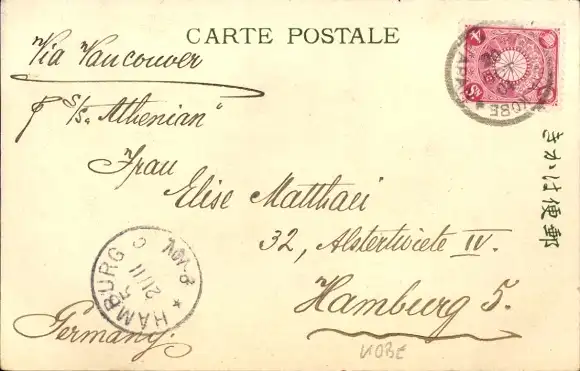 CARTE POSTALE
Via Vancouver
p s/s. "Athenian"
Frau
Elise Matthaei
32, Alstertwiete IV.
Hamburg 5.
Germany.
きかは便郵
KOBE
JAPAN
HAMBURG 5
21/11
KOBE